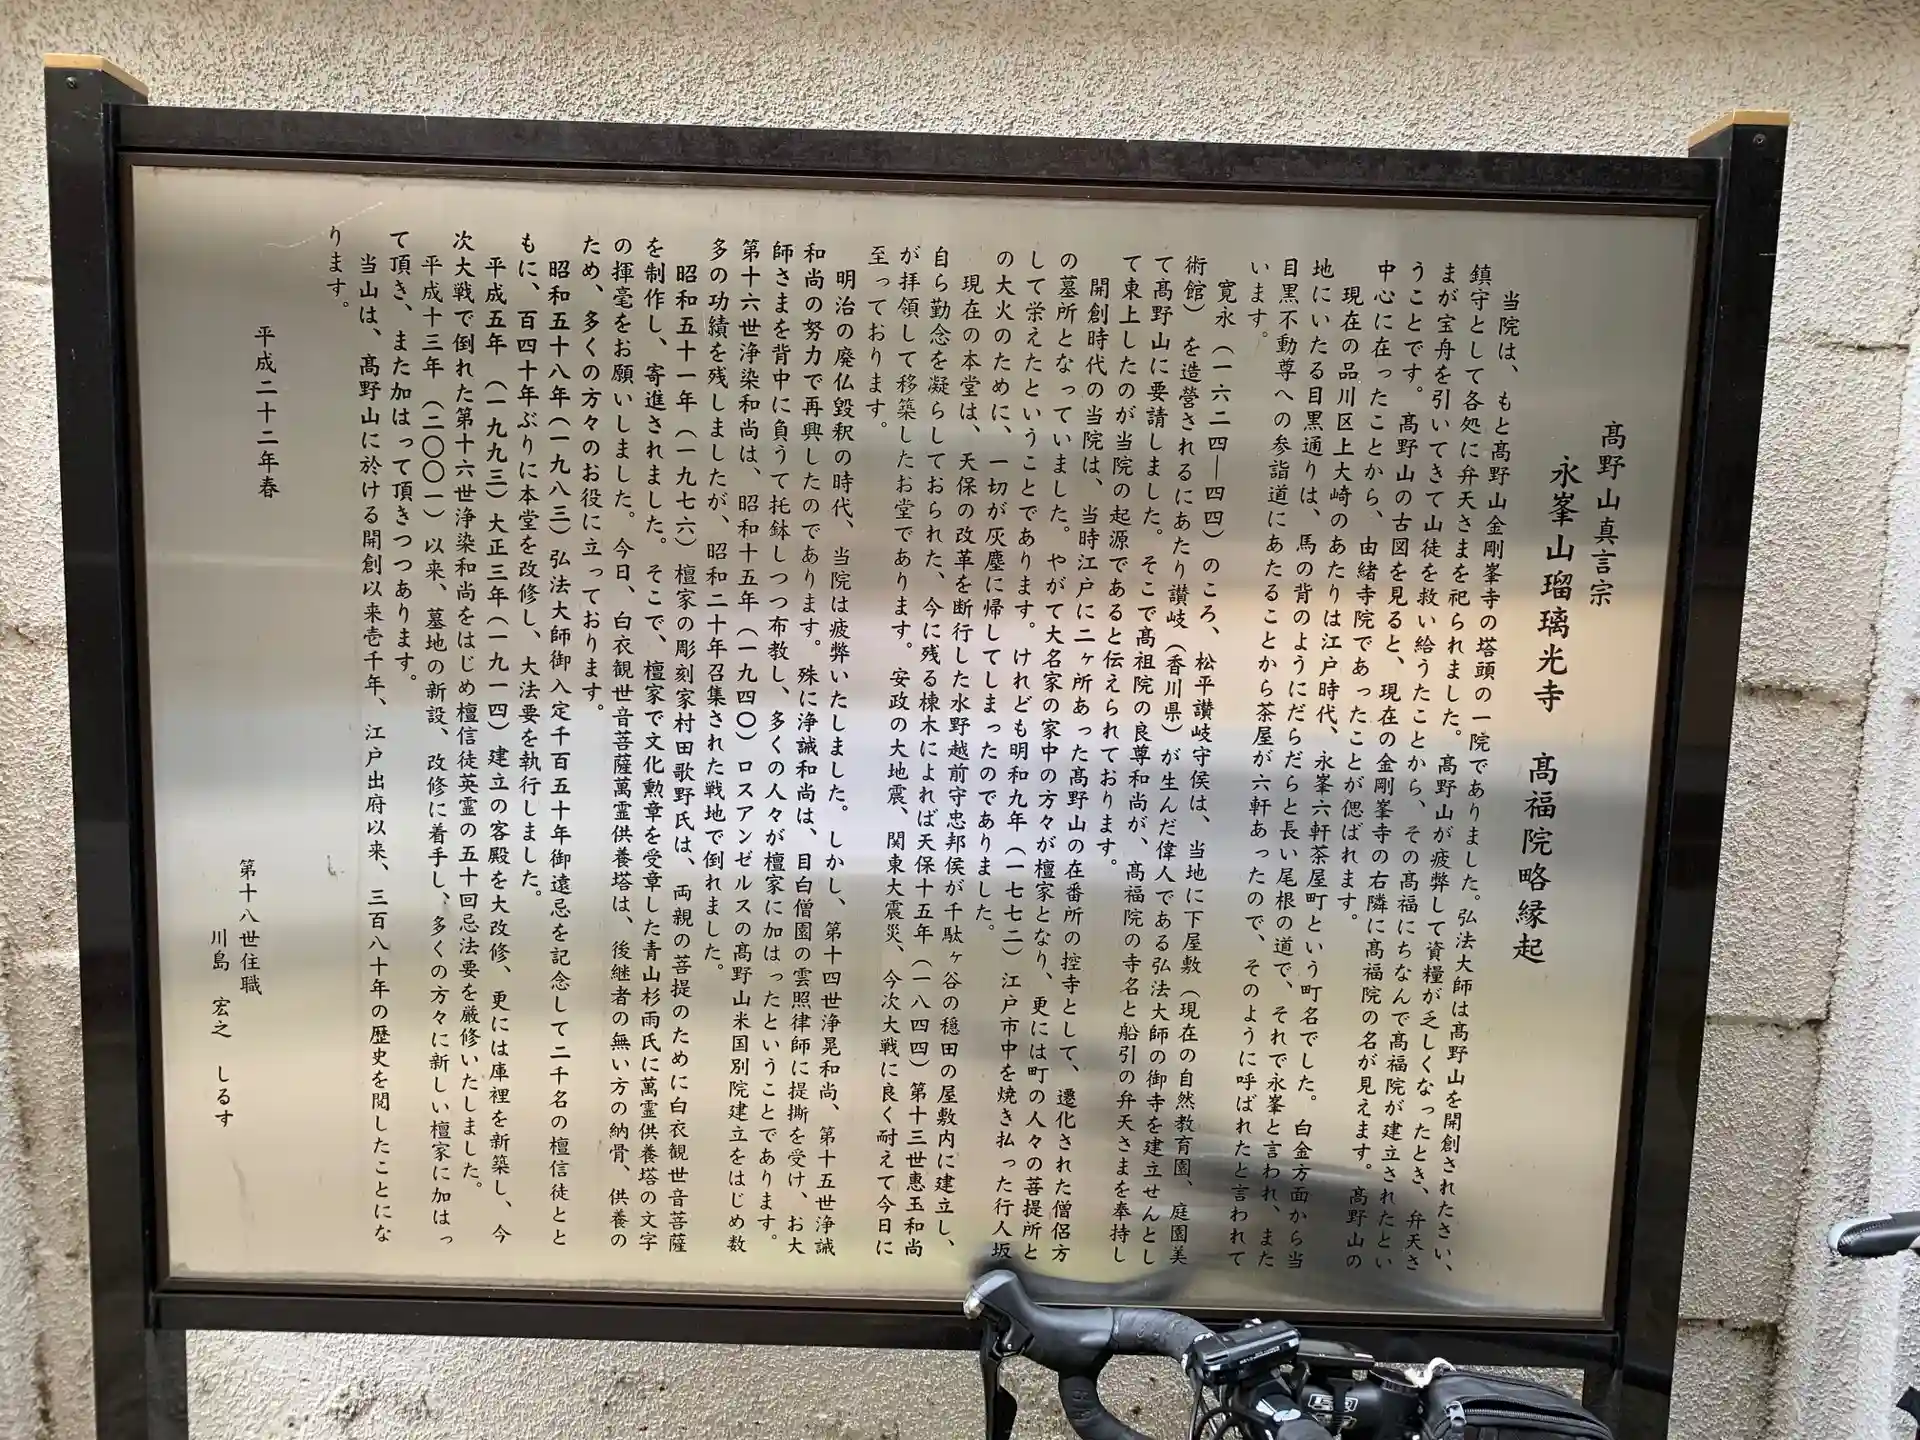 高野山真言宗
永峯山瑠璃光寺　高福院略縁起
当院は、もと高野山金剛峯寺の塔頭の一院でありました。弘法大師は高野山を開創されたさい、
鎮守として各処に弁天さまを祀られました。高野山が疲弊して資糧が乏しくなったとき、弁天さ
まが宝舟を引いてきて山徒を救い給うたことから、その高福にちなんで高福院が建立されたとい
うことです。高野山の古図を見ると、現在の金剛峯寺の右隣に高福院の名が見えます。高野山の
中心に在ったことから、由緒寺院であったことが偲ばれます。
現在の品川区上大崎のあたりは江戸時代、永峯六軒茶屋町という町名でした。白金方面から当
地にいたる目黒通りは、馬の背のようにだらだらと長い尾根の道で、それで永峯と言われ、また
目黒不動尊への参詣道にあたることから茶屋が六軒あったので、そのように呼ばれたと言われて
います。
寛永（一六二四―四四）のころ、松平讃岐守侯は、当地に下屋敷（現在の自然教育園、庭園美
術館）を造営されるにあたり讃岐（香川県）が生んだ偉人である弘法大師の御寺を建立せんとし
て高野山に要請しました。そこで高祖院の良尊和尚が、高福院の寺名と船引の弁天さまを奉持し
て東上したのが当院の起源であると伝えられております。
開創時代の当院は、当時江戸に二ヶ所あった高野山の在番所の控寺として、遷化された僧侶方
の墓所となっていました。やがて大名家の家中の方々が檀家となり、更には町の人々の菩提所と
して栄えたということであります。けれども明和九年（一七七二）江戸市中を焼き払った行人坂
の大火のために、一切が灰塵に帰してしまったのでありました。
現在の本堂は、天保の改革を断行した水野越前守忠邦侯が千駄ヶ谷の穏田の屋敷内に建立し、
自ら勤念を凝らしておられた、今に残る棟木によれば天保十五年（一八四四）第十三世惠玉和尚
が拝領して移築したお堂であります。安政の大地震、関東大震災、今次大戦に良く耐えて今日に
至っております。
明治の廃仏毀釈の時代、当院は疲弊いたしました。しかし、第十四世浄晃和尚、第十五世浄誠
和尚の努力で再興したのであります。殊に浄誠和尚は、目白僧園の雲照律師に提撕を受け、お大
師さまを背中に負うて托鉢しつつ布教し、多くの人々が檀家に加はったということであります。
第十六世浄染和尚は、昭和十五年（一九四〇）ロスアンゼルスの高野山米国別院建立をはじめ数
多の功績を残しましたが、昭和二十年召集された戦地で倒れました。
昭和五十一年（一九七六）檀家の彫刻家村田歌野氏は、両親の菩提のために白衣観世音菩薩
を制作し、寄進されました。そこで、檀家で文化勲章を受章した青山杉雨氏に萬霊供養塔の文字
の揮毫をお願いしました。今日、白衣観世音菩薩萬霊供養塔は、後継者の無い方の納骨、供養の
ため、多くの方々のお役に立っております。
昭和五十八年（一九八三）弘法大師御入定千百五十年御遠忌を記念して二千名の檀信徒とと
もに、百四十年ぶりに本堂を改修し、大法要を執行しました。
平成五年（一九九三）大正三年（一九一四）建立の客殿を大改修、更には庫裡を新築し、今
次大戦で倒れた第十六世浄染和尚をはじめ檀信徒英霊の五十回忌法要を厳修いたしました。
平成十三年（二〇〇一）以来、墓地の新設、改修に着手し、多くの方々に新しい檀家に加はっ
て頂き、また加はって頂きつつあります。
当山は、高野山に於ける開創以来壱千年、江戸出府以来、三百八十年の歴史を閲したことにな
ります。
平成二十二年春
第十八世住職
川島　宏之　しるす